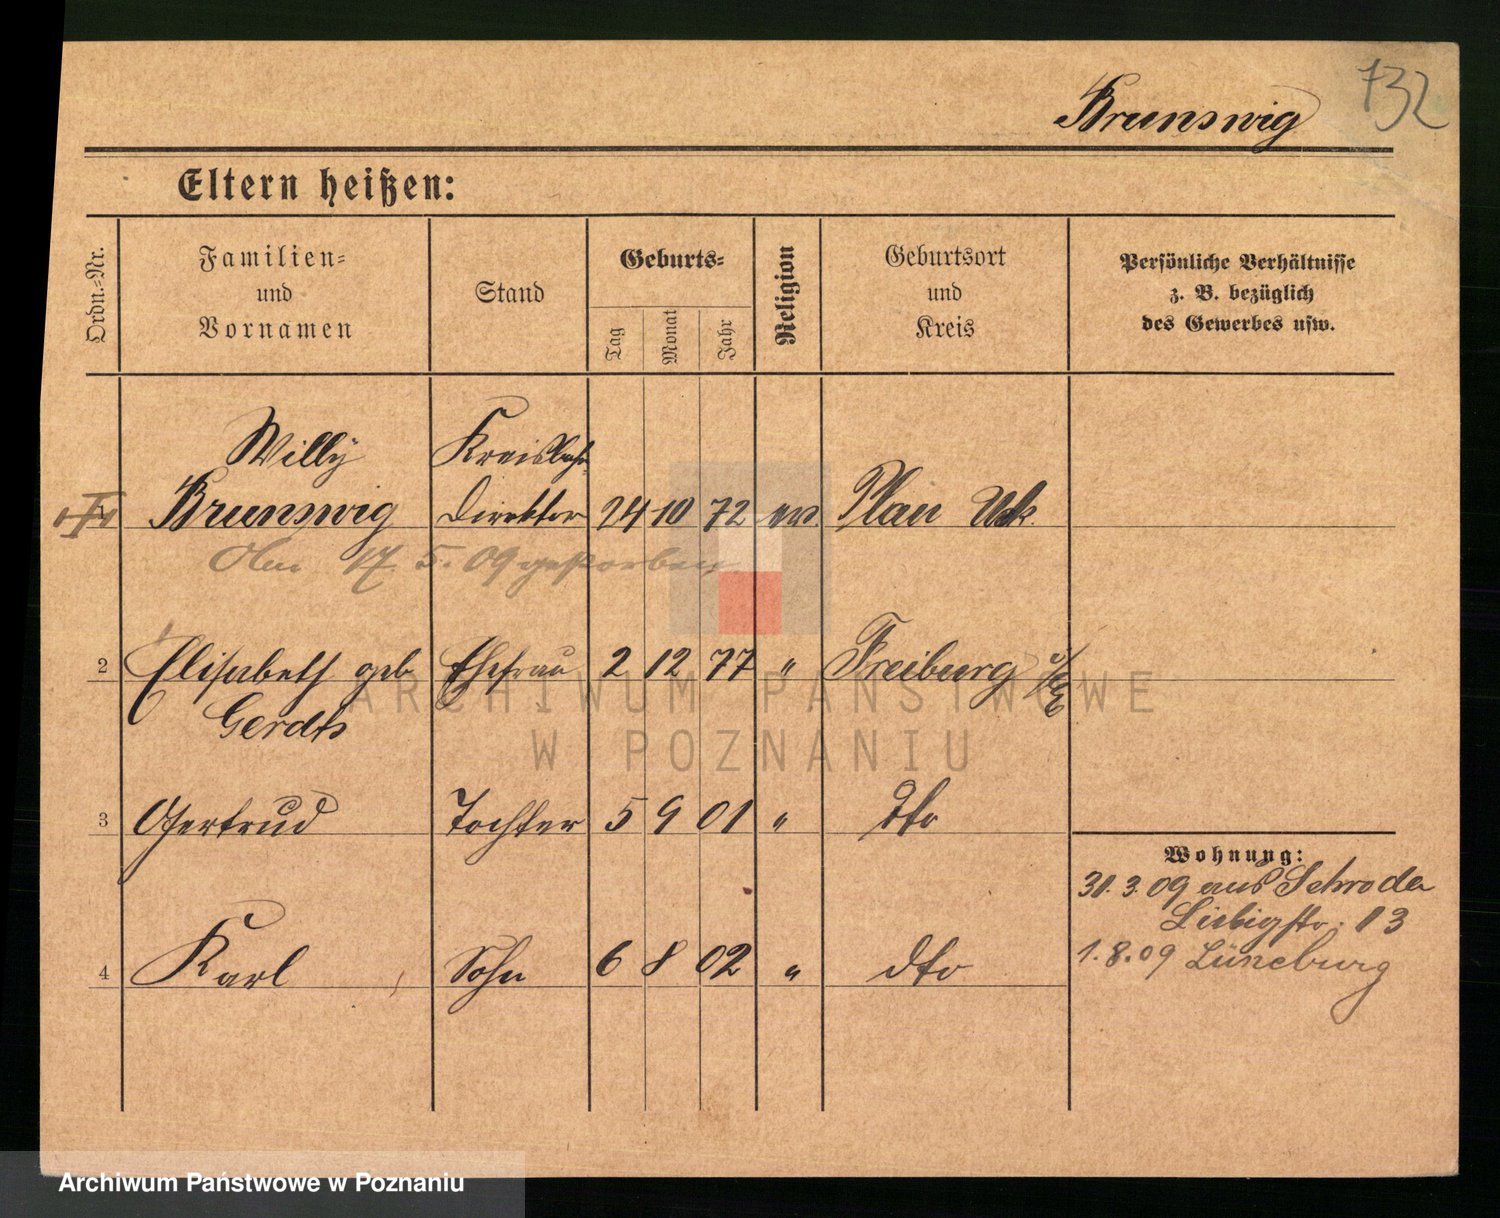 732
Brunswig
Eltern heißen:
Ordn.-Nr.
Familien-
und
Vornamen
Stand
Geburts-
Tag
Monat
Jahr
Religion
Geburtsort
und
Kreis
Persönliche Verhältnisse
z. B. bezüglich
des Gewerbes usw.
Willy Kreisbahn
Brunswig Direktor 24 10 72 ev. Plau
Am 17. 5. 09 gestorben
2 Elisabeth geb Ehefrau 2 12 77 " Freiburg
Gerdts
3 Gertrud Tochter 5 9 01 " dto
Wohnung:
31. 3. 09 aus Schroda
Liebigstr. 13
4 Karl Sohn 6 8 02 " dto
1. 8. 09 Lüneburg
ARCHIWUM PAŃSTWOWE
W POZNANIU
Archiwum Państwowe w Poznaniu